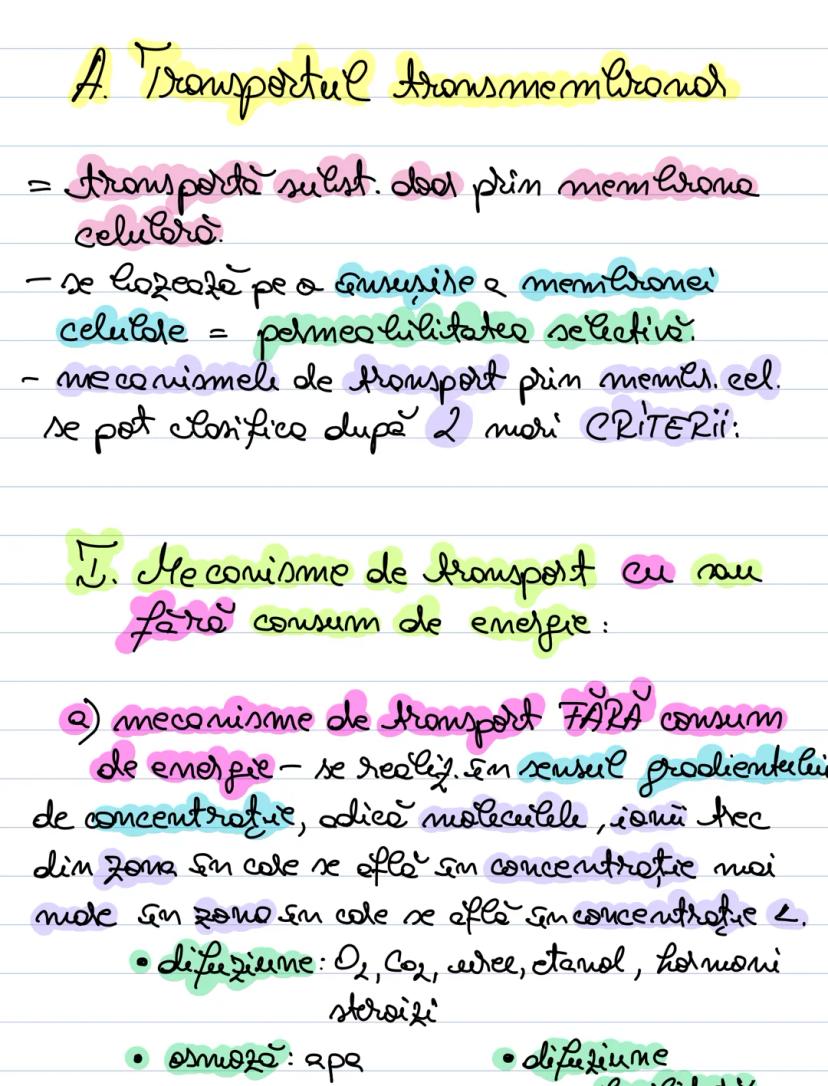 A. Transportul transmembranar
= transportă subst. doar prin membrana
celulară.
- se bazează pe o însușire a membranei
celulare = permeabilitatea selectivă.
- mecanismele de transport prin membr. cel.
se pot clasifica după 2 mari CRITERII:
I. Mecanisme de transport cu sau
fără consum de energie:
a) mecanisme de transport FĂRĂ consum
de energie - se realiz. în sensul gradientului
de concentrație, adică moleculele, ionii trec
din zona în care se află în concentrație mai
mare în zona în care se află în concentrație <.
• difuziune: O2, CO2, uree, etanol, hormoni
steroizi
• osmoză: apa • difuziune